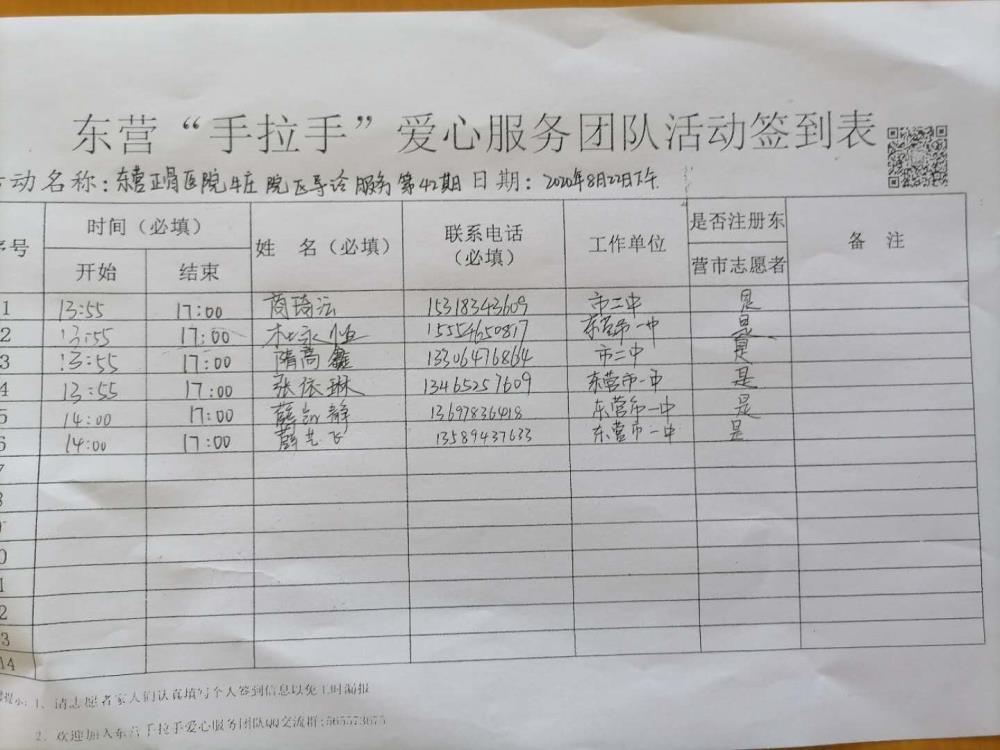 东营“手拉手”爱心服务团队活动签到表
动名称：东营正骨医院牛庄院区导诊服务第42期 日期：2020年8月22日下午
序号 时间（必填） 姓 名（必填） 联系电话（必填） 工作单位 是否注册东营市志愿者 备 注
开始 结束
1 13:55 17:00 商琦沄 15318343609 市二中 是
2 13:55 17:00 杜永恒 15554650817 东营市一中 是
3 13:55 17:00 隋高鑫 13306476864 市二中 是
4 13:55 17:00 张依琳 13465257609 东营市一中 是
5 14:00 17:00 薛 静 13697836418 东营市一中 是
6 14:00 17:00 薛 飞 13589437633 东营市一中 是
7
8
9
0
1
2
3
14
提示：1、请志愿者家人们认真填写个人签到信息以免工时漏报
2、欢迎加入东营手拉手爱心服务团队QQ交流群:565573675